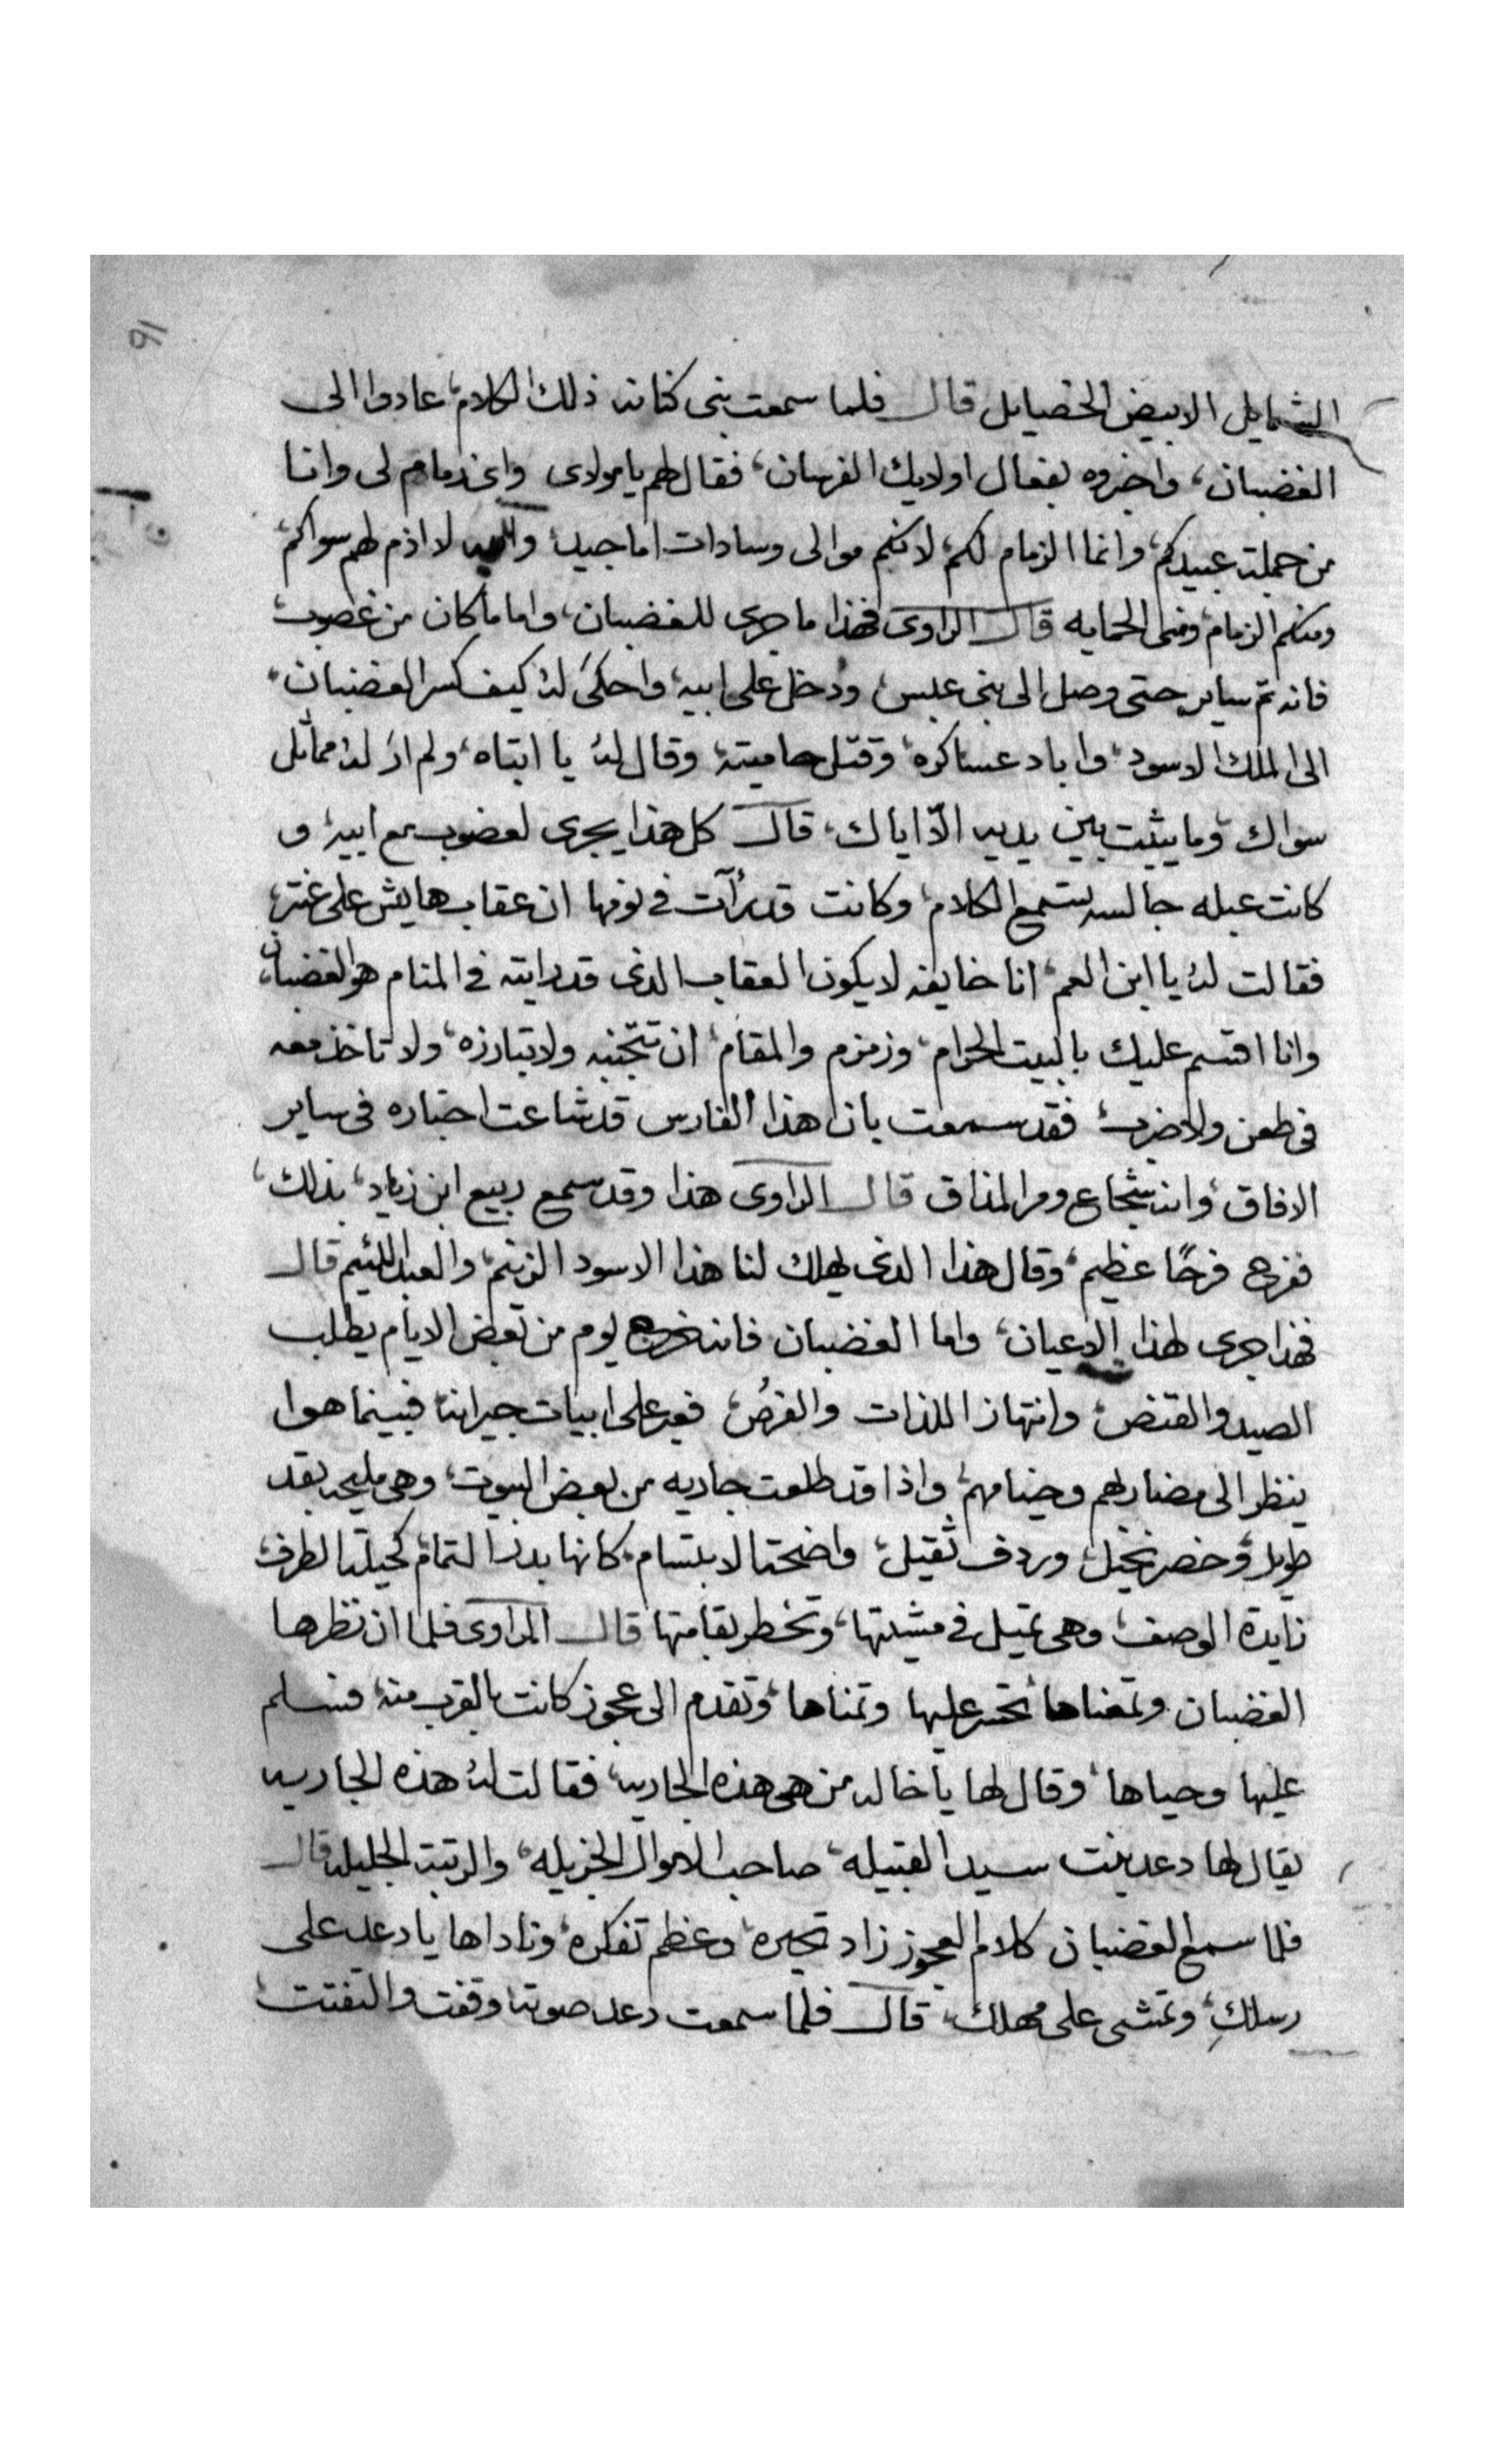 ٩١
الشمايل الابيض الخصايل قال فلما سمعت بنى كنانه ذلك الكلام، عادوا الى
الغضبان، واخبروه بفعال اولايك الفرسان، فقال لهم يا موالى واى زمام لى وانا
من جملت عبيدكم، وانما الزمام لكم، لانكم موالى وسادات اماجيد، والله لا اذم لهم سواكم،
ومنكم الزمام، ومنى الحمايه قال الراوى فهذا ما جرى للغضبان، واما ما كان من غصوب،
فانه تم ساير حتى وصل الى بنى عبس، ودخل على ابيه، واحكى له كيف كسر الغضبان،
الى الملك الاسود، واباد عساكره، وقتل حاميته، وقال له يا ابتاه، ولم ار له مماثل
سواك، وما يثبت بين يديه الّا اياك، قال كل هذا يجرى لغضوب مع ابيه، و
كانت عبله جالسه تستمع الكلام، وكانت قد رأت فى نومها ان عقاب هايش على عنتر،
فقالت له يا ابن العم، انا خايفه لا يكون العقاب الذى قد رايته فى المنام هو الغضبان،
وانا اقتسم عليك بالبيت الحرام، وزمزم والمقام، ان تتجنبه ولا تبارزه، ولا تاخذ معه
فى طعن ولا ضرب، فقد سمعت بان هذا الفارس قد شاعت اخباره فى ساير
الافاق، وانه شجاع ومر المذاق قال الراوى هذا وقد سمع ربيع ابن زياد، بذلك،
ففرح فرحًا عظيم، وقال هذا الذى يهلك لنا هذا الاسود الزنيم، والعبد اللئيم قال
فهذا جرى لهذا الاعيان، واما الغضبان فانه خرج يوم من بعض الايام يطلب
الصيد والقنص، وانتهاز اللذات والفرص، فعبر على ابيات جيرانه فبينما هوا
ينظر الى مضاربهم وخيامهم، واذا قد طلعت جاريه من بعض البيوت، وهى مليحه بقد
طويل، وخصر نحيل، وردف ثقيل، واضحت الابتسام، كانها بدر التمام، كحيلت الطرف،
زايدة الوصف، وهى تميل فى مشيتها، وتخطر بقامتها قال الراوى فلما ان نظرها
الغضبان وتمعناها تحسر عليها وتمناها، وتقدم الى عجوز كانت بالقرب منه، فسلم
عليها وحياها، وقال لها يا خاله من هى هذه الجاريه، فقالت له هذه الجاريه
يقال لها دعد بنت سيد القبيله، صاحب الاموال الجزيله، والرتبت الجليله قال
فلما سمع الغضبان كلام العجوز زاد تحيره، وعظم تفكره، وناداها يا دعد على
رسلكِ، وتمشى على مهلك، قال فلما سمعت دعد صوته وقفت والتفتت،